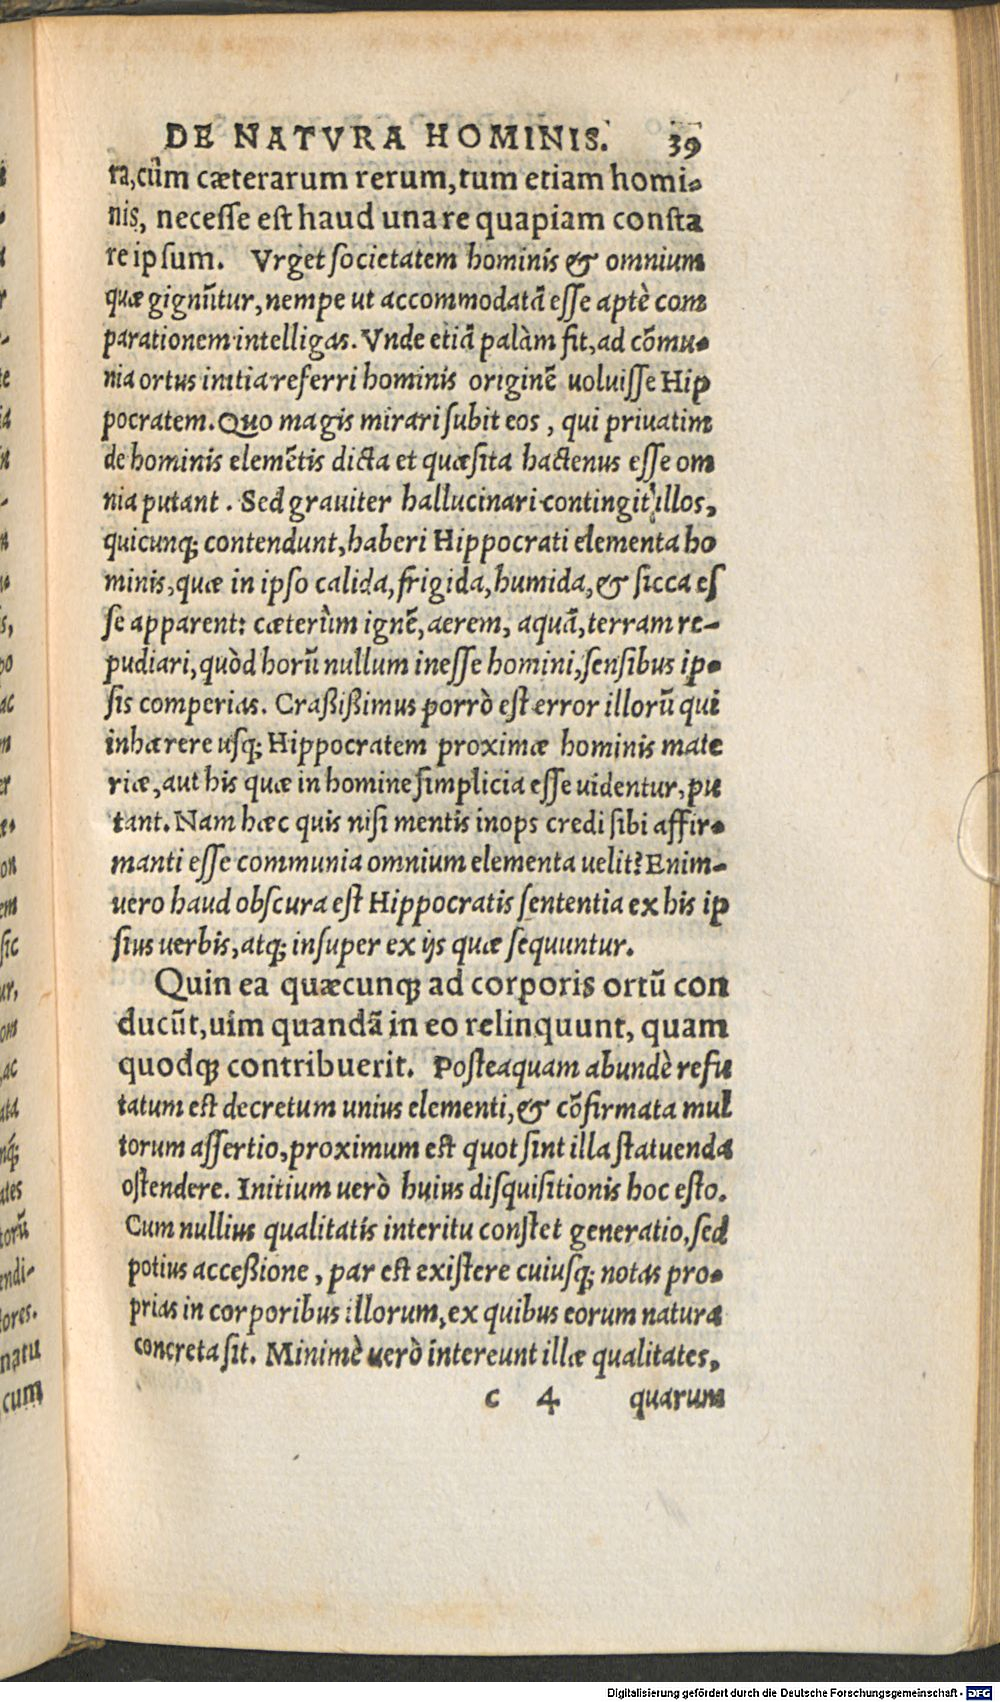 DE NATVRA HOMINIS. 39
ra, cùm cæterarum rerum, tum etiam homi-
nis, necesse est haud una re quapiam consta
re ipsum. Vrget societatem hominis & omnium
quæ gignūtur, nempe ut accommodatā esse aptè com
parationem intelligas. Vnde etiā palàm fit, ad cōmu-
nia ortus initia referri hominis originē uoluisse Hip
pocratem. Quo magis mirari subit eos, qui priuatim
de hominis elemētis dicta et quæsita hactenus esse om
nia putant. Sed grauiter hallucinari contingit illos,
quicunq; contendunt, haberi Hippocrati elementa ho
minis, quæ in ipso calida, frigida, humida, & sicca es
se apparent: cæterùm ignē, aerem, aquā, terram re-
pudiari, quòd horū nullum inesse homini, sensibus ip-
sis comperias. Craßißimus porrò est error illorū qui
inhærere usq; Hippocratem proximæ hominis mate
riæ, aut his quæ in homine simplicia esse uidentur, pu
tant. Nam hæc quis nisi mentis inops credi sibi affir-
manti esse communia omnium elementa uelit? Enim-
uero haud obscura est Hippocratis sententia ex his ip
sius uerbis, atq; insuper ex ijs quæ sequuntur.
Quin ea quæcunq; ad corporis ortū con
ducūt, uim quandā in eo relinquunt, quam
quodq; contribuerit. Posteaquam abundè refu
tatum est decretum unius elementi, & cōfirmata mul
torum assertio, proximum est quot sint illa statuenda
ostendere. Initium uerò huius disquisitionis hoc esto.
Cum nullius qualitatis interitu constet generatio, sed
potius acceßione, par est existere cuiusq; notas pro-
prias in corporibus illorum, ex quibus eorum natura
concreta sit. Minimè uerò intereunt illæ qualitates,
c 4 quarum
Digitalisierung gefördert durch die Deutsche Forschungsgemeinschaft - DFG